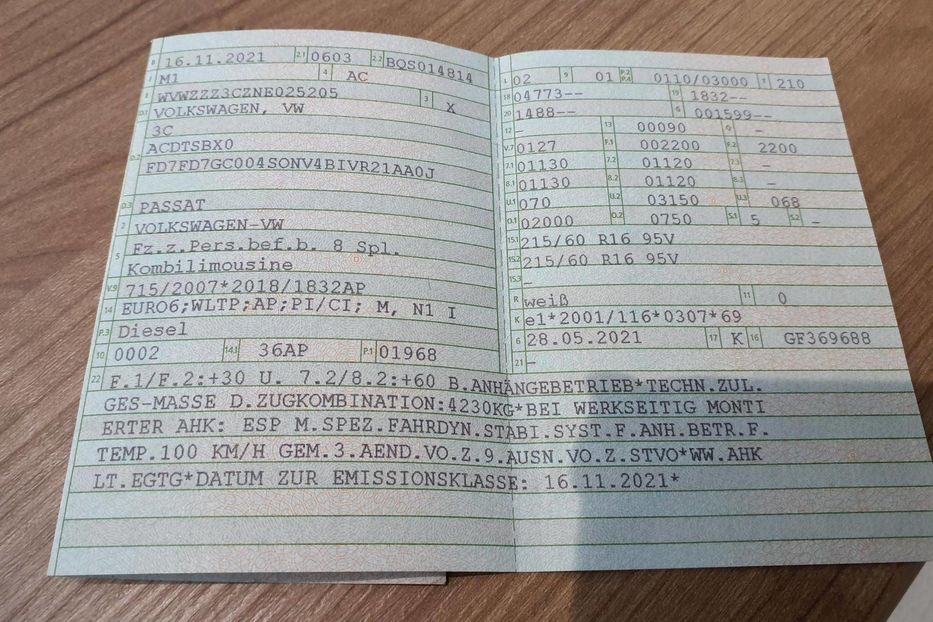 B 16.11.2021 2.1 0603 2.2 BQS014814
J M1 4 AC
E WVWZZZ3CZNE025205 3 X
D.1 VOLKSWAGEN, VW
3C
D.2 ACDTSBX0
FD7FD7GC004SONV4BIVR21AA0J
D.3 PASSAT
2 VOLKSWAGEN-VW
5 Fz.z.Pers.bef.b. 8 Spl.
Kombilimousine
V.9 715/2007*2018/1832AP
14 EURO6;WLTP;AP;PI/CI; M, N1 I
P.3 Diesel
10 0002 14.1 36AP P.1 01968
L 02 9 01 P.2 P.4 0110/03000 T 210
18 04773-- 19 1832--
20 1488-- G 001599--
12 - 13 00090 Q -
V.7 0127 F.1 002200 F.2 2200
7.1 01130 7.2 01120 7.3 -
8.1 01130 8.2 01120 8.3 -
U.1 070 U.2 03150 U.3 068
O.1 02000 O.2 0750 S.1 5 S.2 -
15.1 215/60 R16 95V
15.2 215/60 R16 95V
15.3 -
R weiß 11 0
K e1*2001/116*0307*69
6 28.05.2021 17 K 16 GF369688
21 -
22 F.1/F.2:+30 U. 7.2/8.2:+60 B.ANHÄNGEBETRIEB*TECHN.ZUL.
GES-MASSE D.ZUGKOMBINATION:4230KG*BEI WERKSEITIG MONTI
ERTER AHK: ESP M.SPEZ.FAHRDYN.STABI.SYST.F.ANH.BETR.F.
TEMP.100 KM/H GEM.3.AEND.VO.Z.9.AUSN.VO.Z.STVO*WW.AHK
LT.EGTG*DATUM ZUR EMISSIONSKLASSE: 16.11.2021*